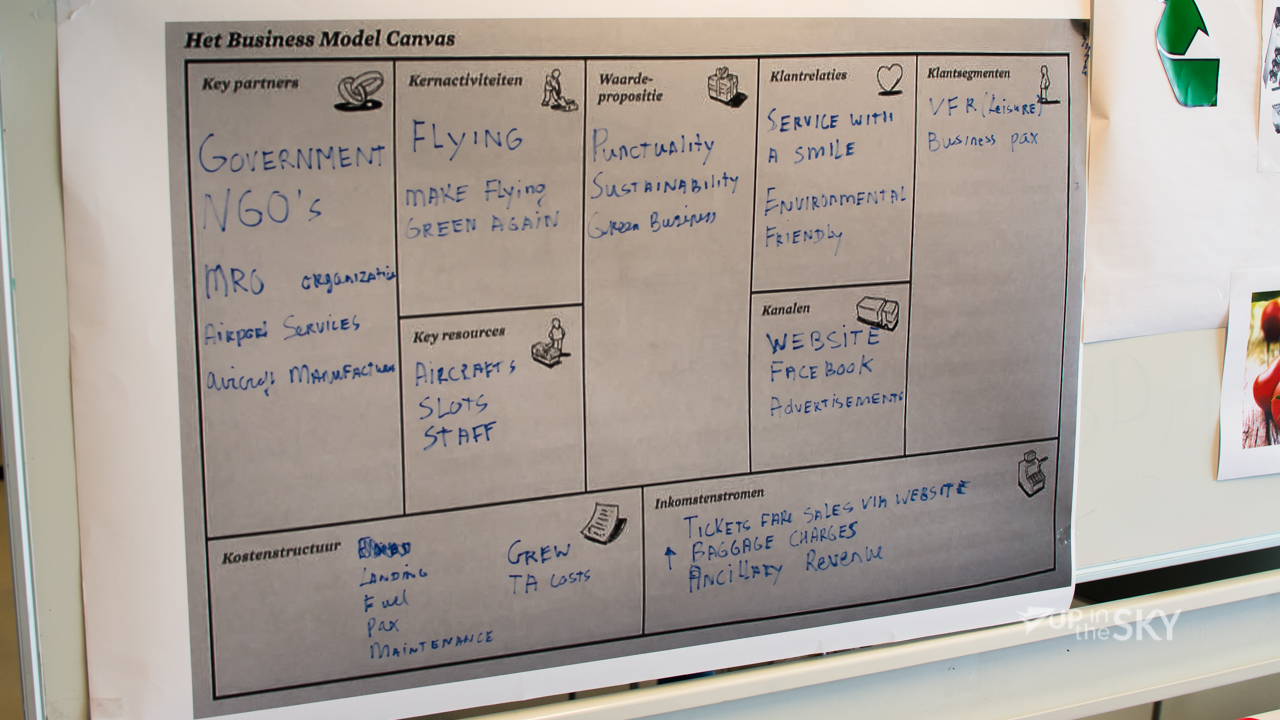 Het Business Model Canvas
Key partners
GOVERNMENT
NGO's
MRO organization
Airport Services
aircraft Manufacturer
Kernactiviteiten
FLYING
MAKE Flying
GREEN AGAIN
Key resources
AIRCRAFTS
SLOTS
STAFF
Waarde-
propositie
Punctuality
SUSTAINABILITY
Green Business
Klantrelaties
SERVICE WITH
A SMILE
ENVIRONMENTAL
FRIENDLY
Kanalen
WEBSITE
FACEBOOK
Advertisements
Klantsegmenten
VFR (Leisure)
Business pax
Kostenstructuur
LANDING
Fuel
Pax
MAINTENANCE
CREW
TA COSTS
Inkomstenstromen
TICKETS FARE SALES VIA WEBSITE
↑ BAGGAGE CHARGES
ANCILLARY Revenue
UP in
the SKY